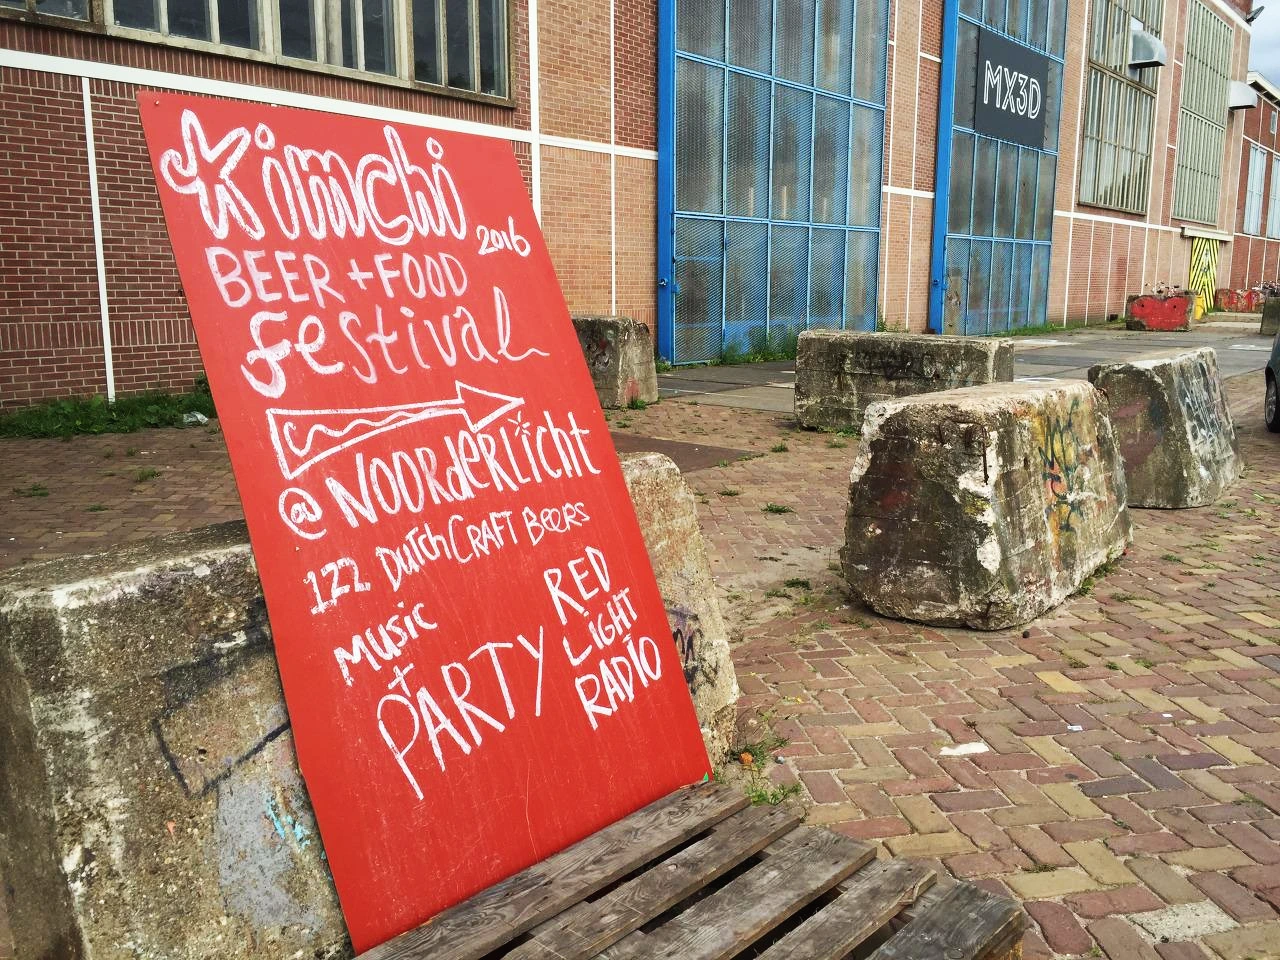 Kimchi 2016
BEER + FOOD
Festival
@ NOORderLicht
122 DutchCRAFT BEERS
Music
+
PARTY
RED
LiGHT
RADiO
MX3D